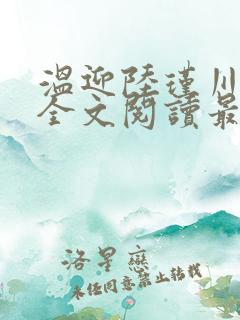 温迎陸瑾川
全文閱讀最
洛星戀
未经同意禁止转载